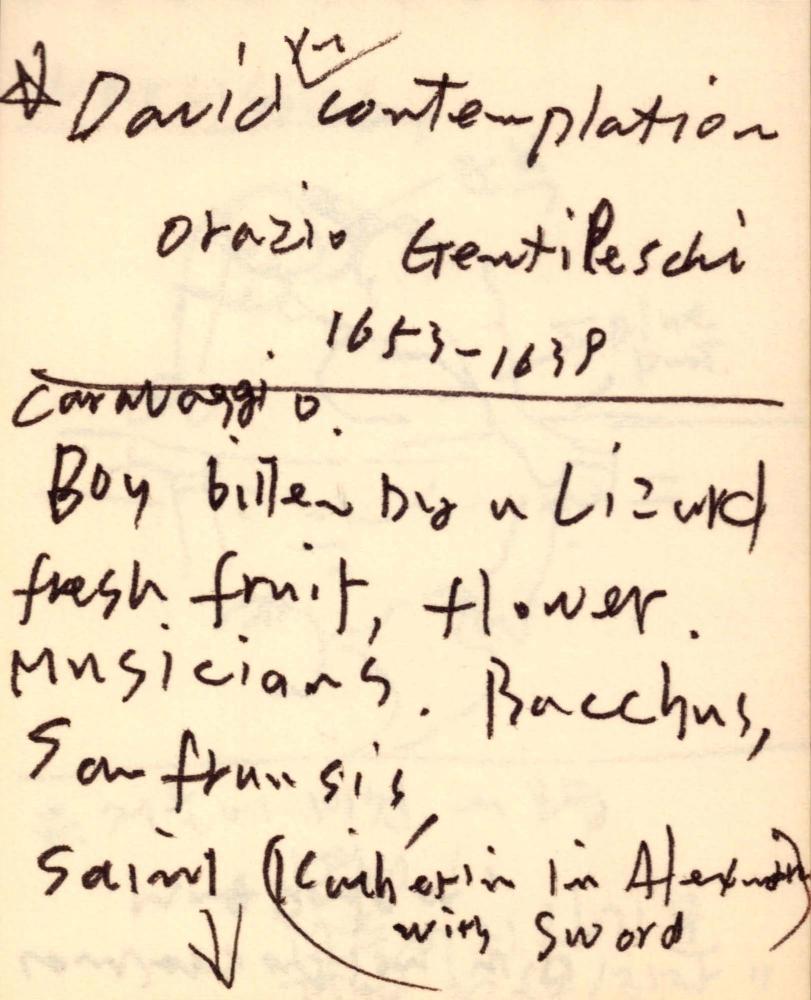 David in contemplation
Orazio Gentileschi
1653-1639
Caravaggio.
Boy bitten by a Lizard
fresh fruit, flower.
Musicians. Bacchus,
San fransis,
Saint (Katherin in Alexandria
with Sword)